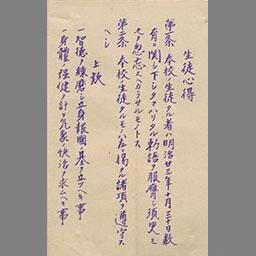 生徒心得
第一条 本校生徒タル者ハ明治廿三年十月三十日教
育ニ関シ下シタマハリタル勅語ヲ服膺シ須臾モ
之ヲ忽忘スヘカラサルモノトス
第二条 本校生徒タルモノハ左ニ掲クル諸項ヲ遵守ス
ヘシ
上款
一智徳ヲ練磨シ立身報國ノ基ヲ立ツヘキ事
一身體ノ強健ヲ計リ気象ノ快活ヲ求ムヘキ事